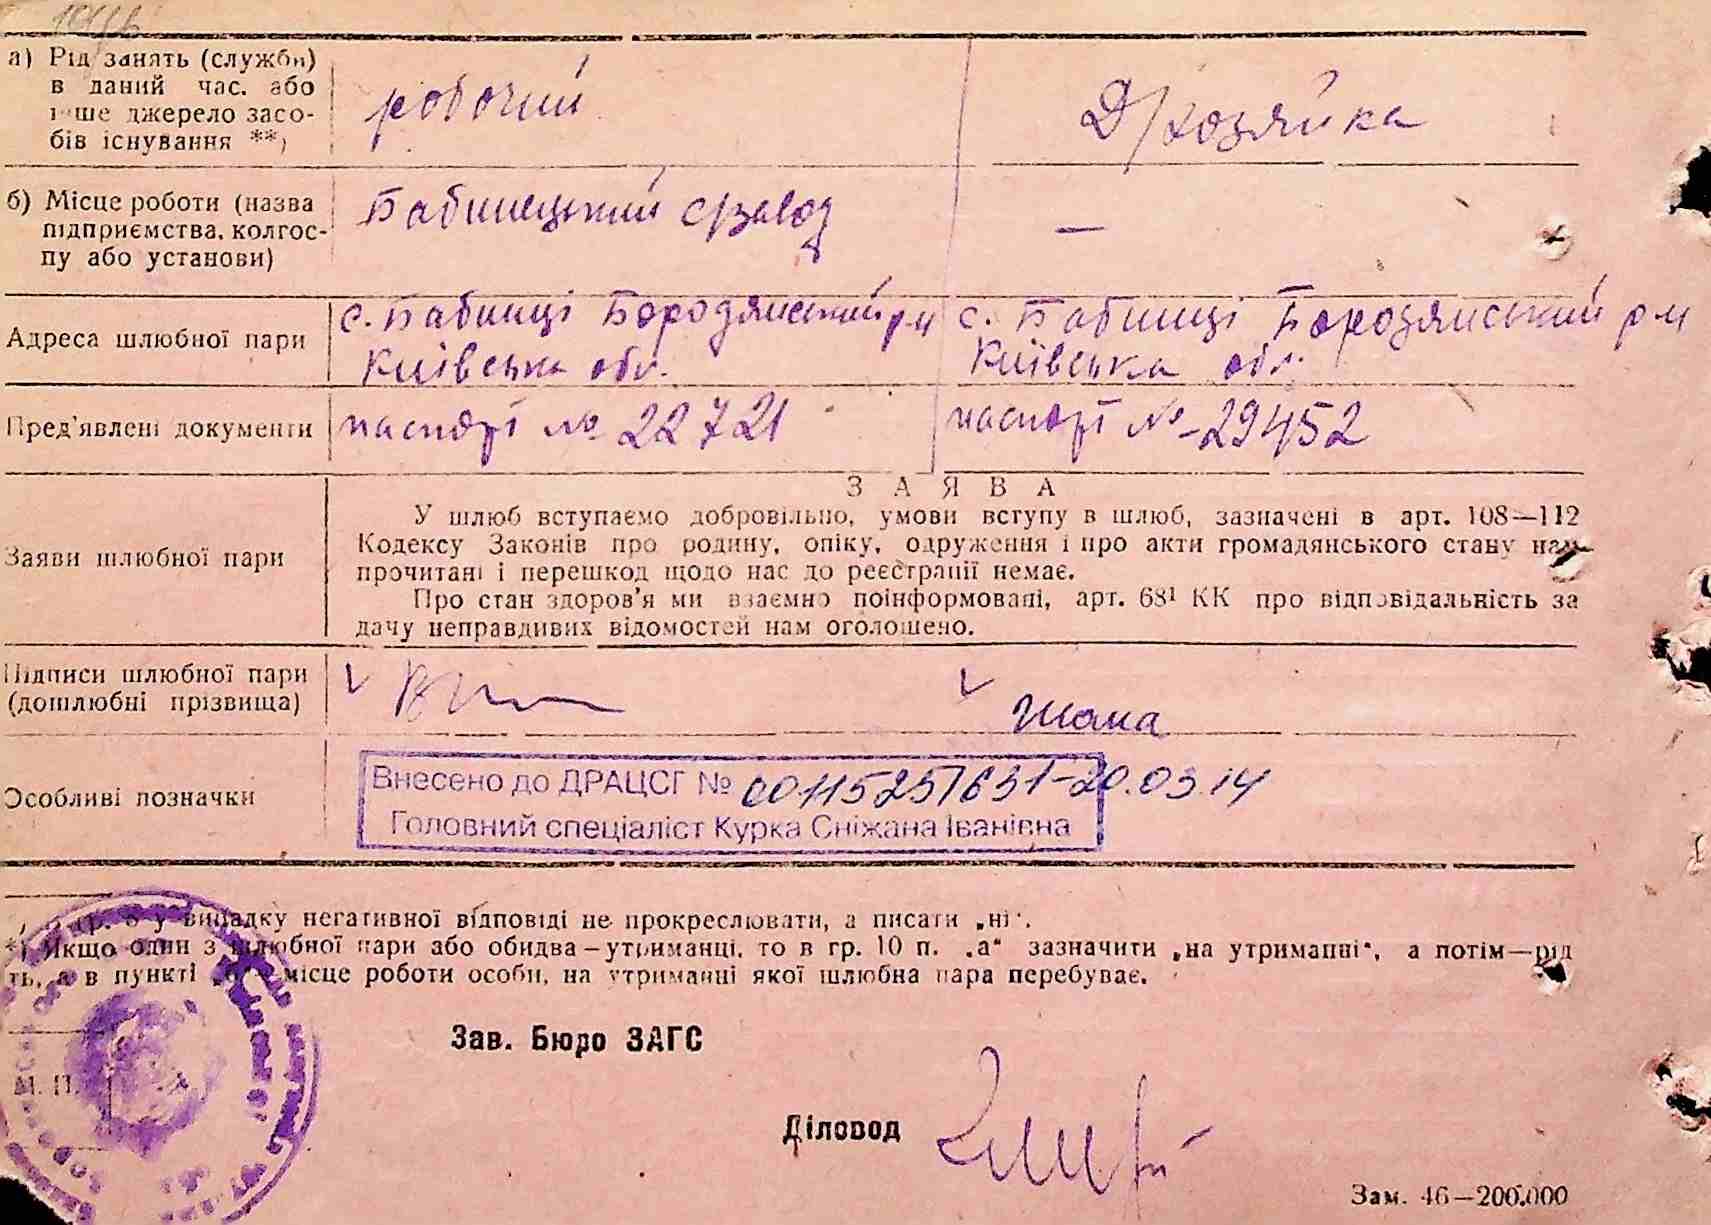 а) Рід занять (служби)
в даний час. або
інше джерело засо-
бів існування **)
робочий
Д/хозяйка
б) Місце роботи (назва
підприємства, колгос-
пу або установи)
Бабинецький с/завод
—
Адреса шлюбної пари
с. Бабинці Бородянський р-н
Київська обл.
с. Бабинці Бородянський р-н
Київська обл.
Пред'явлені документи
паспорт № 22721
паспорт № -29452
Заяви шлюбної пари
ЗАЯВА
У шлюб вступаємо добровільно, умови вступу в шлюб, зазначені в арт. 108—112
Кодексу Законів про родину, опіку, одруження і про акти громадянського стану нам
прочитані і перешкод щодо нас до реєстрації немає.
Про стан здоров'я ми взаємно поінформовані, арт. 68¹ КК про відповідальність за
дачу неправдивих відомостей нам оголошено.
Підписи шлюбної пари
(дошлюбні прізвища)
Особливі позначки
Внесено до ДРАЦСГ № 00115251631-20.03.14
Головний спеціаліст Курка Сніжана Іванівна
у випадку негативної відповіді не прокреслювати, а писати „ні“.
*) Якщо один з шлюбної пари або обидва—утриманці, то в гр. 10 п. „а“ зазначити „на утриманні“, а потім—рід
ть, а в пункті „б“ місце роботи особи, на утриманні якої шлюбна пара перебуває.
Зав. Бюро ЗАГС
М. П.
Діловод
Зам. 46—200.000